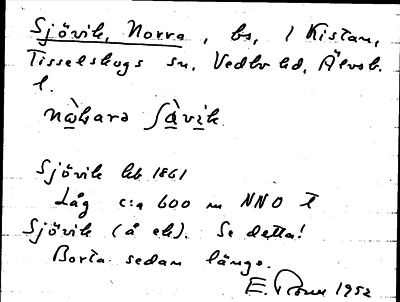 Sjövik, Norra, bs, / Kistan,
Tisselskogs sn, Vedbo hd, Älvsb.
l.
Sjövik hb 1861
Låg c:a 600 m NNO T
Sjövik (å ek). Se detta!
Borta sedan länge.
1952